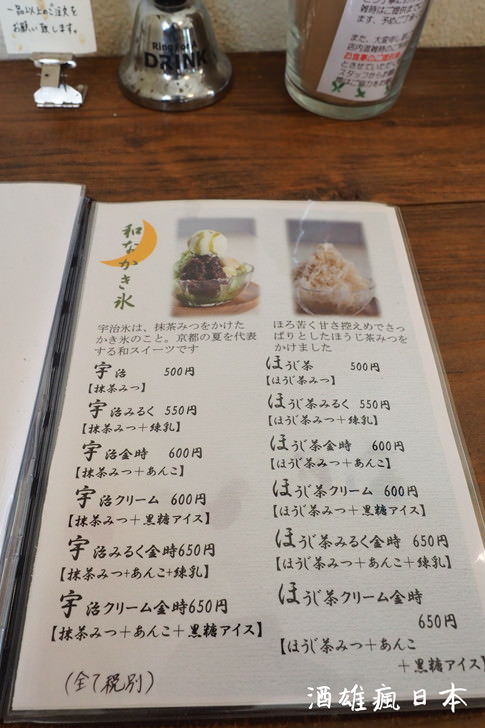 一品以上のご注文を
お願い致します。
Ring For a
DRINK
雑時はご提供まで
ます、予めご了承
また、大変申し
店内混雑時のご利
お食事のご提供
とさせていただ
スタッフからお
際はご協力を
和なかき氷
宇治氷は、抹茶みつをかけた
かき氷のこと。京都の夏を代表
する和スイーツです
宇治 500円
【抹茶みつ】
宇治みるく 550円
【抹茶みつ＋練乳】
宇治金時 600円
【抹茶みつ＋あんこ】
宇治クリーム 600円
【抹茶みつ＋黒糖アイス】
宇治みるく金時650円
【抹茶みつ+あんこ+練乳】
宇治クリーム金時650円
【抹茶みつ＋あんこ＋黒糖アイス】
(全て税別)
ほろ苦く甘さ控えめでさっ
ぱりとしたほうじ茶みつを
かけました
ほうじ茶 500円
【ほうじ茶みつ】
ほうじ茶みるく 550円
【ほうじ茶みつ＋練乳】
ほうじ茶金時 600円
【ほうじ茶みつ＋あんこ】
ほうじ茶クリーム 600円
【ほうじ茶みつ＋黒糖アイス】
ほうじ茶みるく金時 650円
【ほうじ茶みつ＋あんこ＋練乳】
ほうじ茶クリーム金時
650円
【ほうじ茶みつ＋あんこ
＋黒糖アイス】
酒雄瘋日本